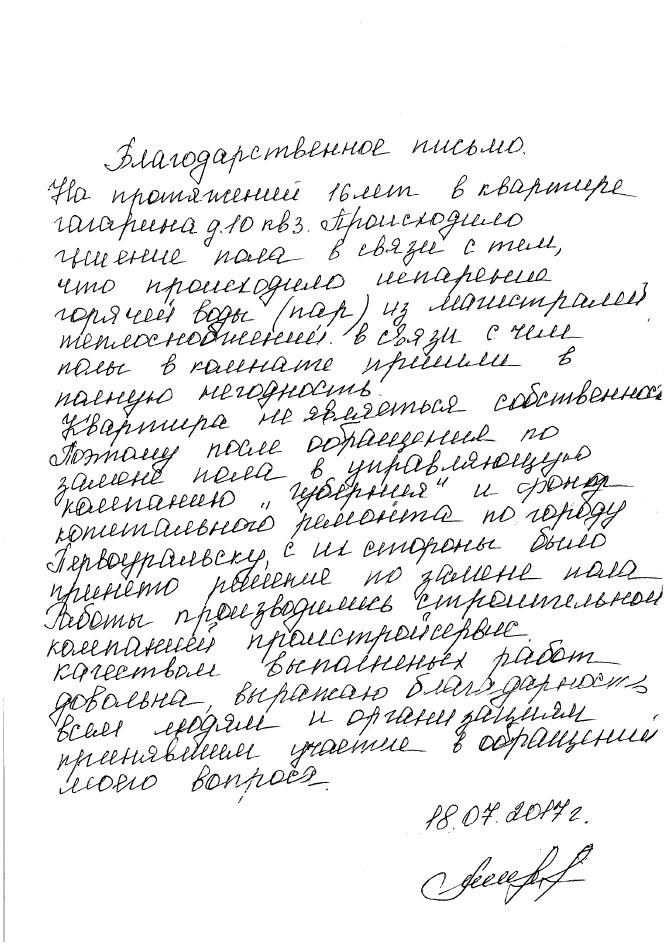 Благодарственное письмо.
На протяжений 16 лет в квартире
гагарина д.10 кв 3. Происходило
гниение пола в связи с тем,
что происходило испарение
горячей воды (пар) из магистралей
теплоснобжений. в связи с чем
полы в комнате пришли в
полную негодность.
Квартира не являеться собственнос
Поэтому после обращения по
замене пола в управляющую
компанию „губерния“ и фонд
копетального ремонта по городу
Первоуральску, с их стороны было
принето решение по замене пола
Работы производились строительной
компанией промстройсервис
качеством выполненых работ
довольна, выражаю благодарность
всем людям и организациям
принявшим участие в обращений
моего вопроса.
18.07.2017г.